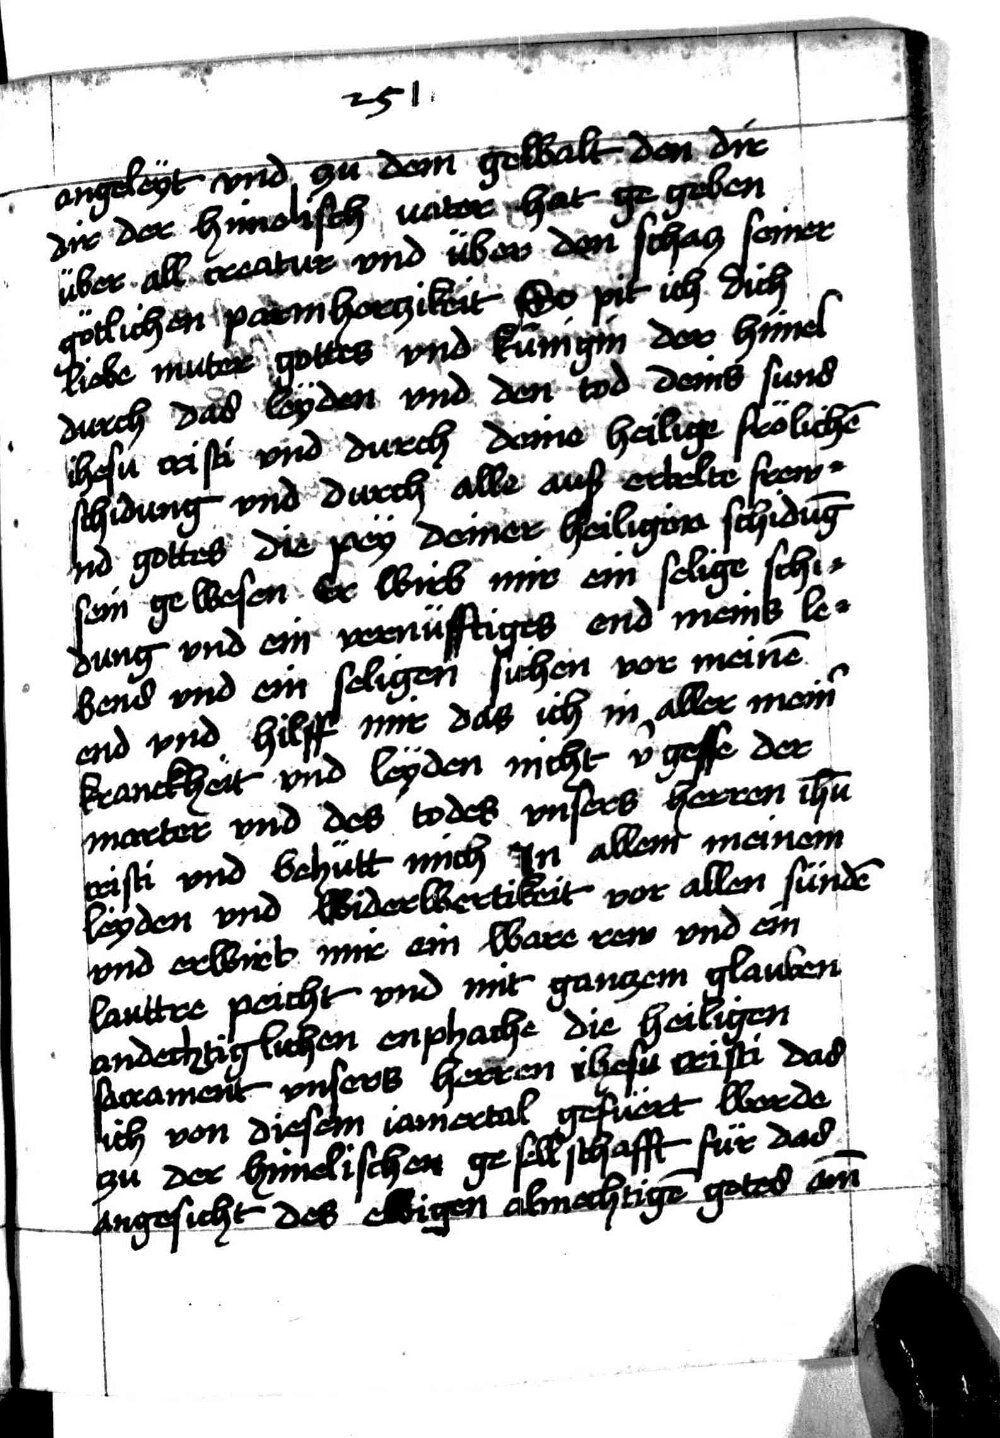 251
angeleÿt vnd zu dem gewalt den dir
dir der himelisch vater hat ge geben
über all creatur vnd über den schacz seiner
götlichen parmherczikeit So pit ich dich
liebe muter gottes vnd künigin der himel
durch das leÿden vnd den tod deins suns
ihesu cristi vnd durch deine heilige frölichē
schidung vnd durch alle auß erbelte frew-
nd gottes die peÿ deiner heiligen schidūg
sein gewesen Er wirb mir ein selige schi-
dung vnd ein vernüfftiges end meins le-
bens vnd ein seligen sichen vor meinē
end vnd hilff mir das ich in aller mein̄
kranckheit vnd leÿden nicht v̄gesse der
marter vnd des todes vnsers herren ih̄u
cristi vnd behütt mich In allem meinem
leÿden vnd widerwertikeit vor allen sündē
vnd erwirb mir ein ware rew vnd ein
lauttre peicht vnd mit ganczem glauben
andechtiglichen enphache die heiligen
sacrament vnsers herren ihesu cristi das
ich von diesem iamertal gefüert werde
zu der himelischen gesellschafft für das
angesicht des ewigen almechtigē gotes am̄